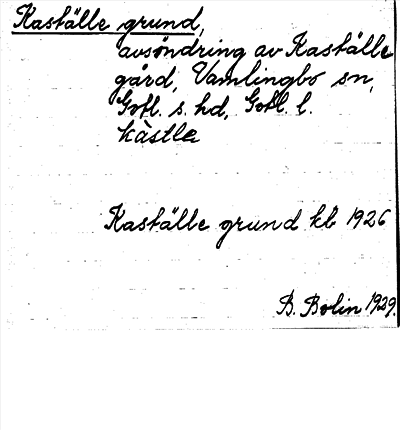 Kaställe grund,
avsöndring av Kaställe
gård, Vamlingbo sn,
Gotl. s. hd, Gotl. l.
kàstlε
Kaställe grund kb 1926
B. Bolin 1929.